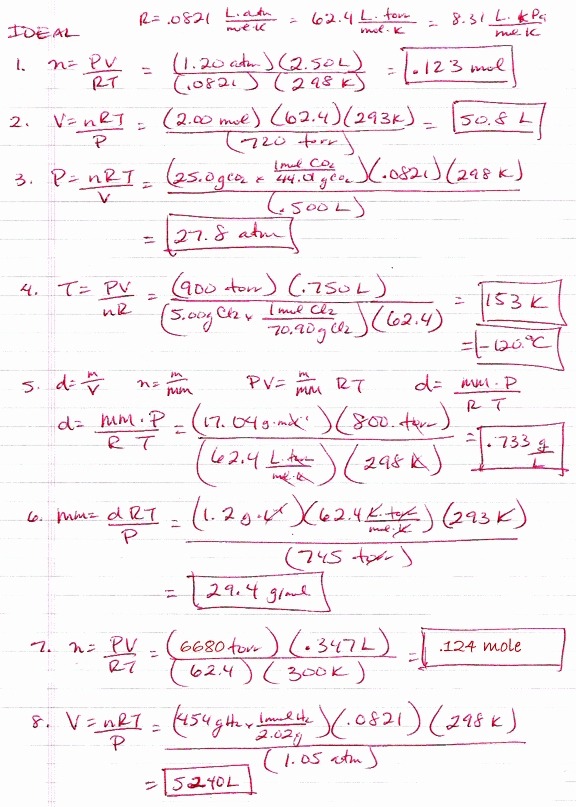 IDEAL R = .0821 L·atm/mol·K = 62.4 L·torr/mol·K = 8.31 L·kPa/mol·K
1. n = PV/RT = (1.20 atm)(2.50 L)/(.0821)(298 K) = .123 mol
2. V = nRT/P = (2.00 mol)(62.4)(293K)/(720 torr) = 50.8 L
3. P = nRT/V = (25.0 g CO2 × 1 mol CO2/44.01 g CO2)(.0821)(298 K)/(.500 L)
= 27.8 atm
4. T = PV/nR = (900 torr)(.750 L)/(5.00 g Cl2 × 1 mol Cl2/70.90 g Cl2)(62.4) = 153 K
= -120.°C
5. d = m/V n = m/mm PV = m/mm RT d = mm·P/RT
d = mm·P/RT = (17.04 g·mol⁻¹)(800. torr)/(62.4 L·torr/mol·K)(298 K) = .733 g/L
6. mm = dRT/P = (1.2 g·L⁻¹)(62.4 L·torr/mol·K)(293 K)/(745 torr)
= 29.4 g/mol
7. n = PV/RT = (6680 torr)(.347 L)/(62.4)(300 K) = .124 mole
8. V = nRT/P = (454 g H2 × 1 mol H2/2.02 g)(.0821)(298 K)/(1.05 atm)
= 5240 L